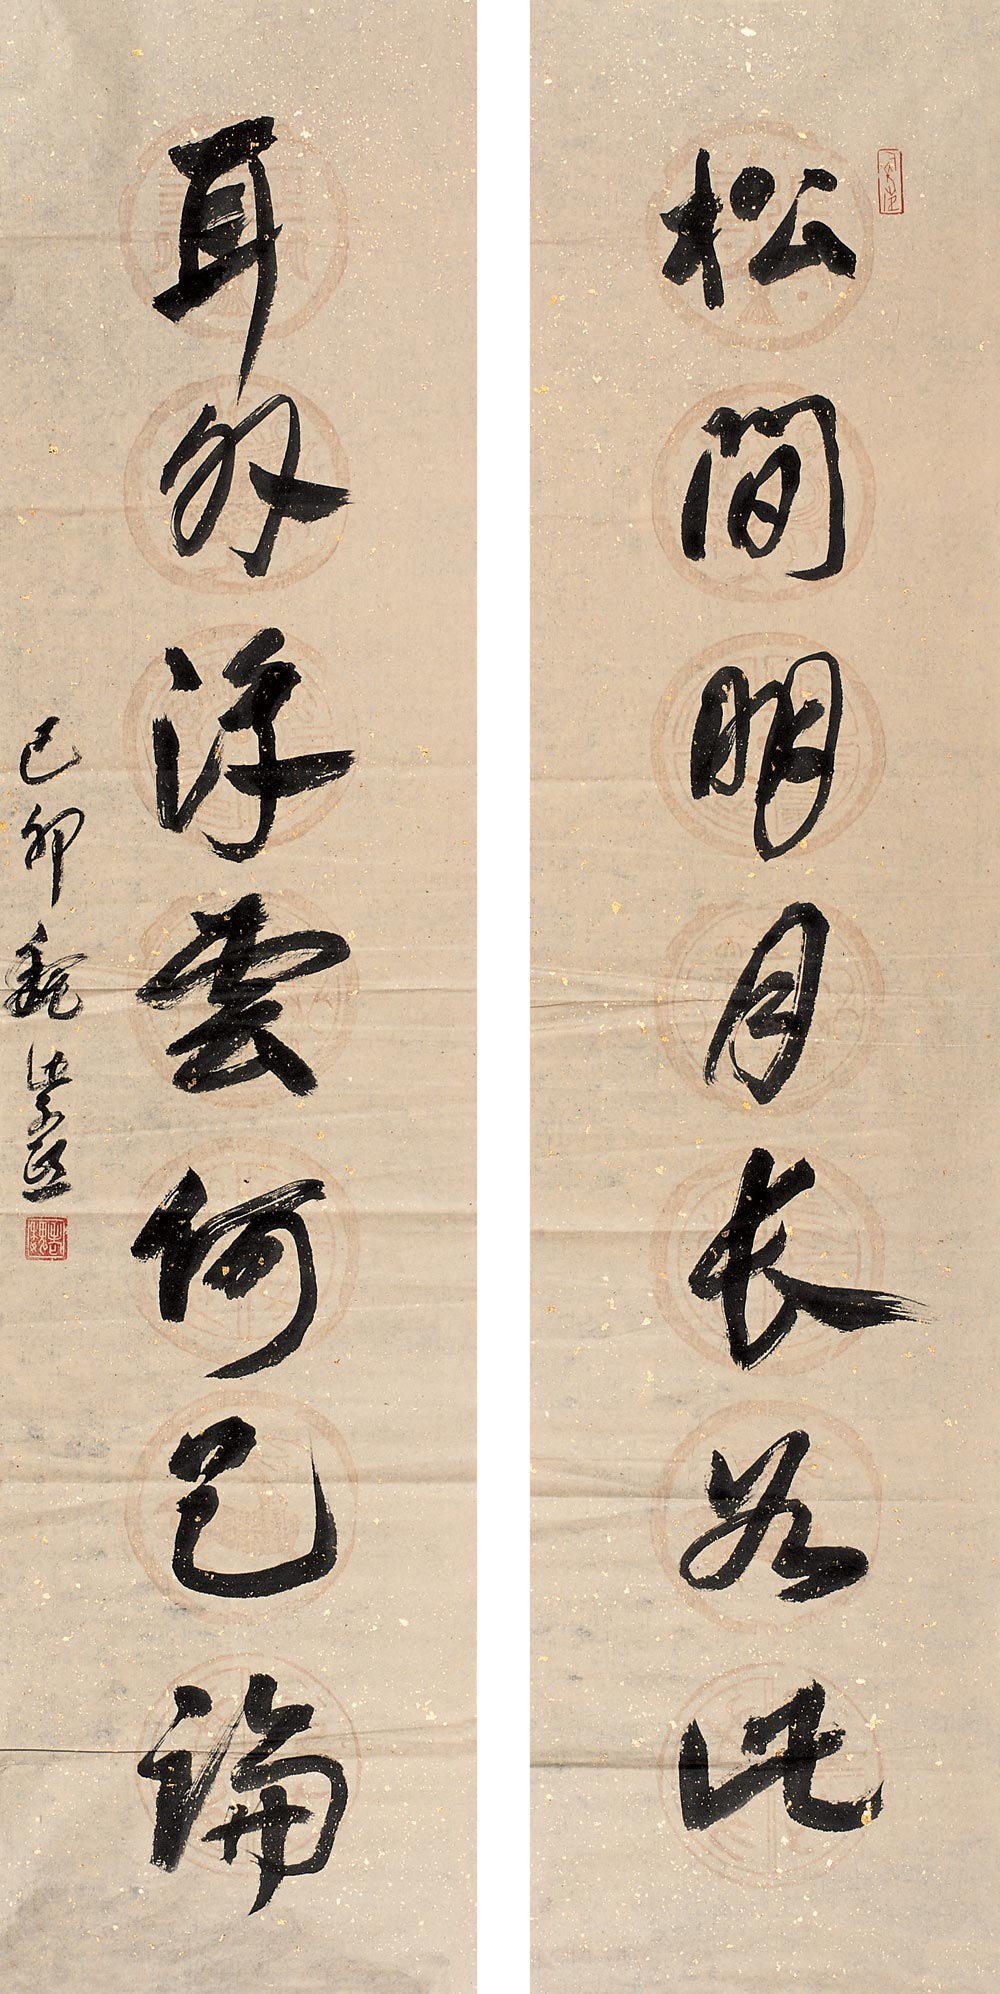 松間明月長如此
身外浮雲何足論
己卯魏